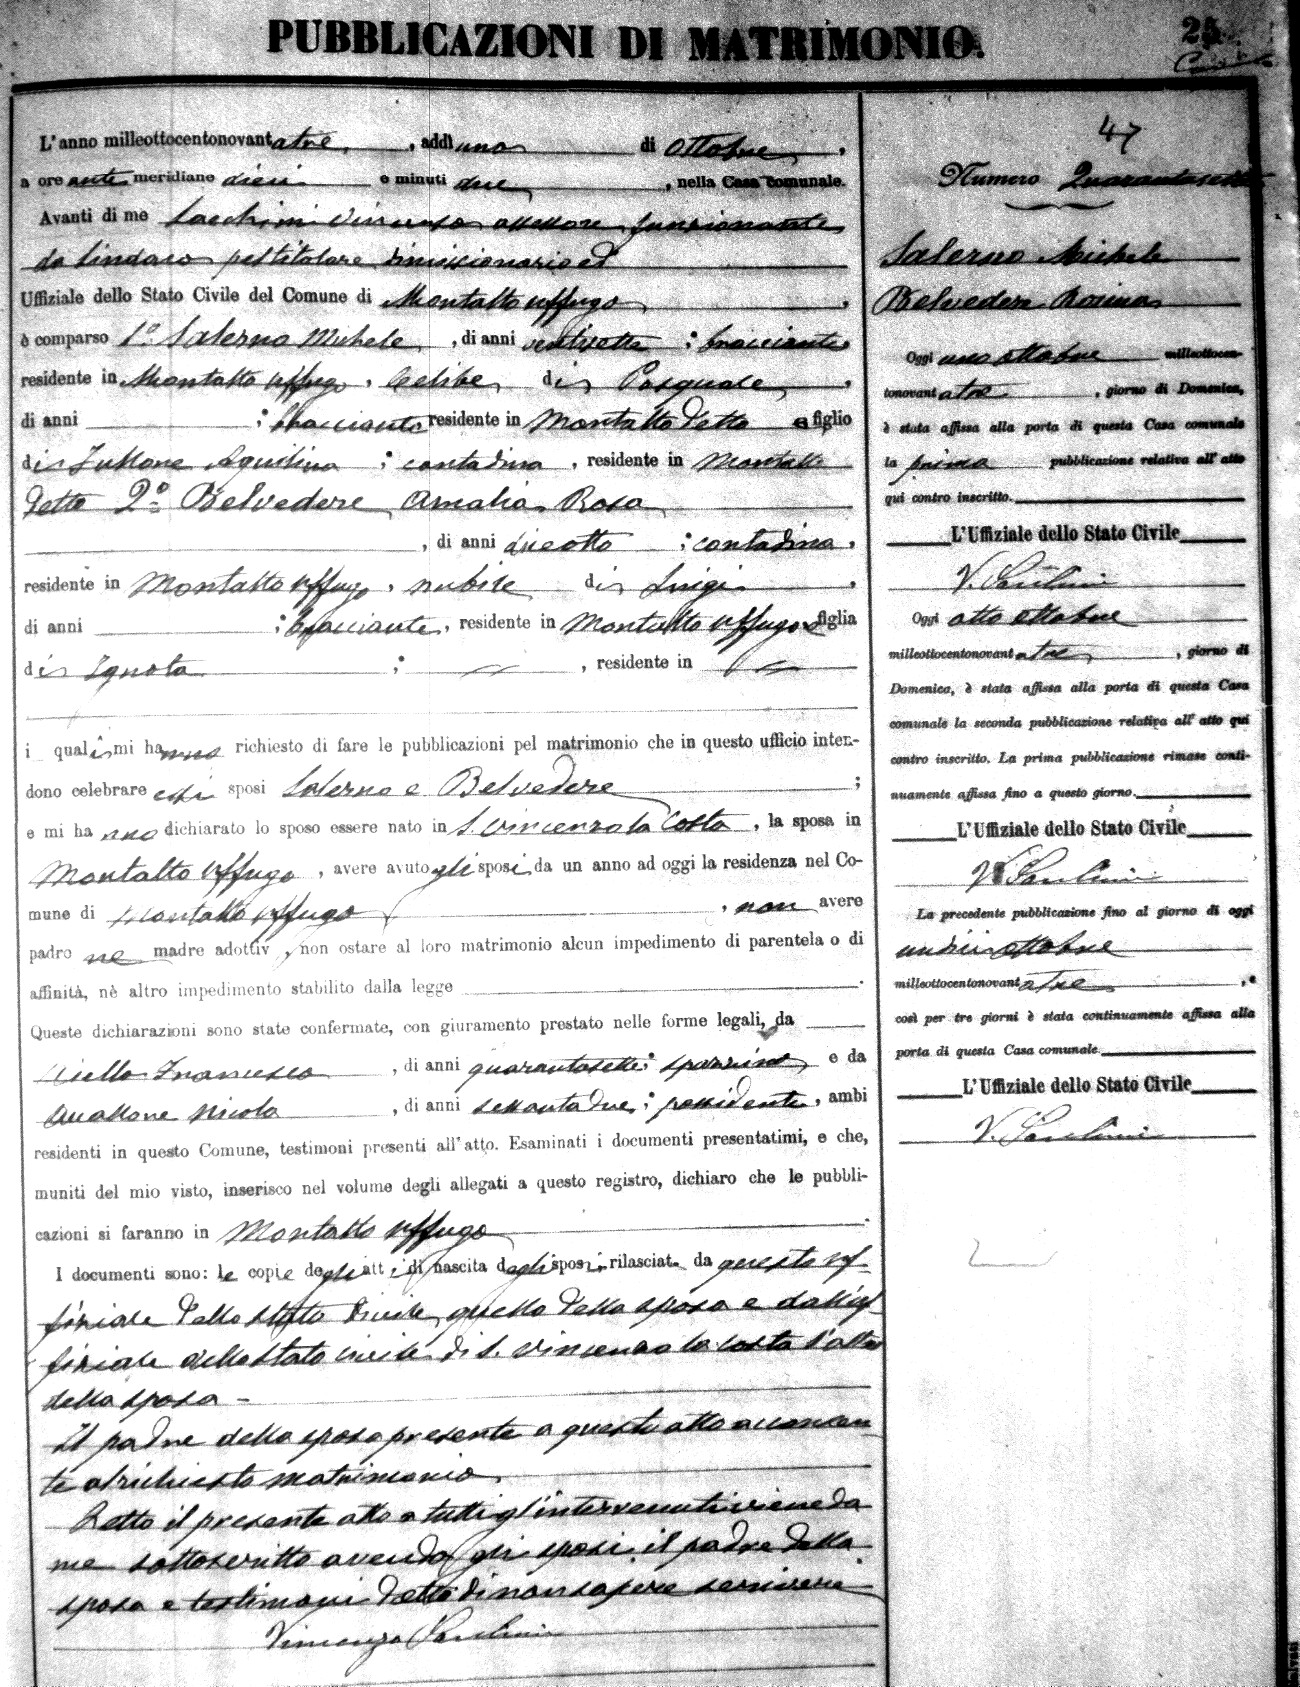 PUBBLICAZIONI DI MATRIMONIO.
25
L'anno milleottocentonovantatre, addì uno di Ottobre,
a ore anti meridiane dieci e minuti due, nella Casa comunale.
Avanti di me Vincenzo assessore funzionante
da Sindaco pel titolare dimissionario ed
Uffiziale dello Stato Civile del Comune di Montalto Uffugo,
è comparso 1.º Salerno Michele, di anni ventisette; bracciante
residente in Montalto Uffugo, celibe di Pasquale,
di anni ; bracciante residente in Montalto detto e figlio
di Aquilina; contadina, residente in Montalto
detto 2º Belvedere Amalia Rosa
, di anni diciotto; contadina,
residente in Montalto Uffugo, nubile di Luigi,
di anni ; bracciante, residente in Montalto Uffugo e figlia
di Ignota ; , residente in
i quali mi hanno richiesto di fare le pubblicazioni pel matrimonio che in questo ufficio inten-
dono celebrare essi sposi Salerno e Belvedere;
e mi hanno dichiarato lo sposo essere nato in S. Vincenzo la Costa, la sposa in
Montalto Uffugo, avere avuto gli sposi da un anno ad oggi la residenza nel Co-
mune di Montalto Uffugo, non avere
padre ne madre adottiv , non ostare al loro matrimonio alcun impedimento di parentela o di
affinità, nè altro impedimento stabilito dalla legge.
Queste dichiarazioni sono state confermate, con giuramento prestato nelle forme legali, da
Francesco, di anni quarantasette; spazzino e da
Nicola, di anni sessantadue; possidente, ambi
residenti in questo Comune, testimoni presenti all'atto. Esaminati i documenti presentatimi, e che,
muniti del mio visto, inserisco nel volume degli allegati a questo registro, dichiaro che le pubbli-
cazioni si faranno in Montalto Uffugo.
I documenti sono: le copie degli atti di nascita degli sposi, rilasciat da questo uf-
fiziale dello Stato Civile quello della sposa e dall'uf-
fiziale dello Stato civile di S. Vincenzo la Costa l'altro
della sposa -
Il padre della sposa presente a questo atto acconsen
te al richiesto matrimonio.
Letto il presente atto a tutti gl'intervenuti viene da
me sottoscritto avendo gli sposi, il padre della
sposa e testimoni detto di non sapere scrivere
Vincenzo
47
Numero Quarantasette
Salerno Michele
Belvedere Rosina
Oggi uno ottobre milleottocen-
tonovantatre, giorno di Domenica,
è stata affissa alla porta di questa Casa comunale
la prima pubblicazione relativa all'atto
qui contro inscritto.
L'Uffiziale dello Stato Civile
V.
Oggi otto Ottobre
milleottocentonovantatre, giorno di
Domenica, è stata affissa alla porta di questa Casa
comunale la seconda pubblicazione relativa all'atto qui
contro inscritto. La prima pubblicazione rimase conti-
nuamente affissa fino a questo giorno.
L'Uffiziale dello Stato Civile
V.
La precedente pubblicazione fino al giorno di oggi
undici ottobre
milleottocentonovantatre, e
così per tre giorni è stata continuamente affissa alla
porta di questa Casa comunale
L'Uffiziale dello Stato Civile
V.